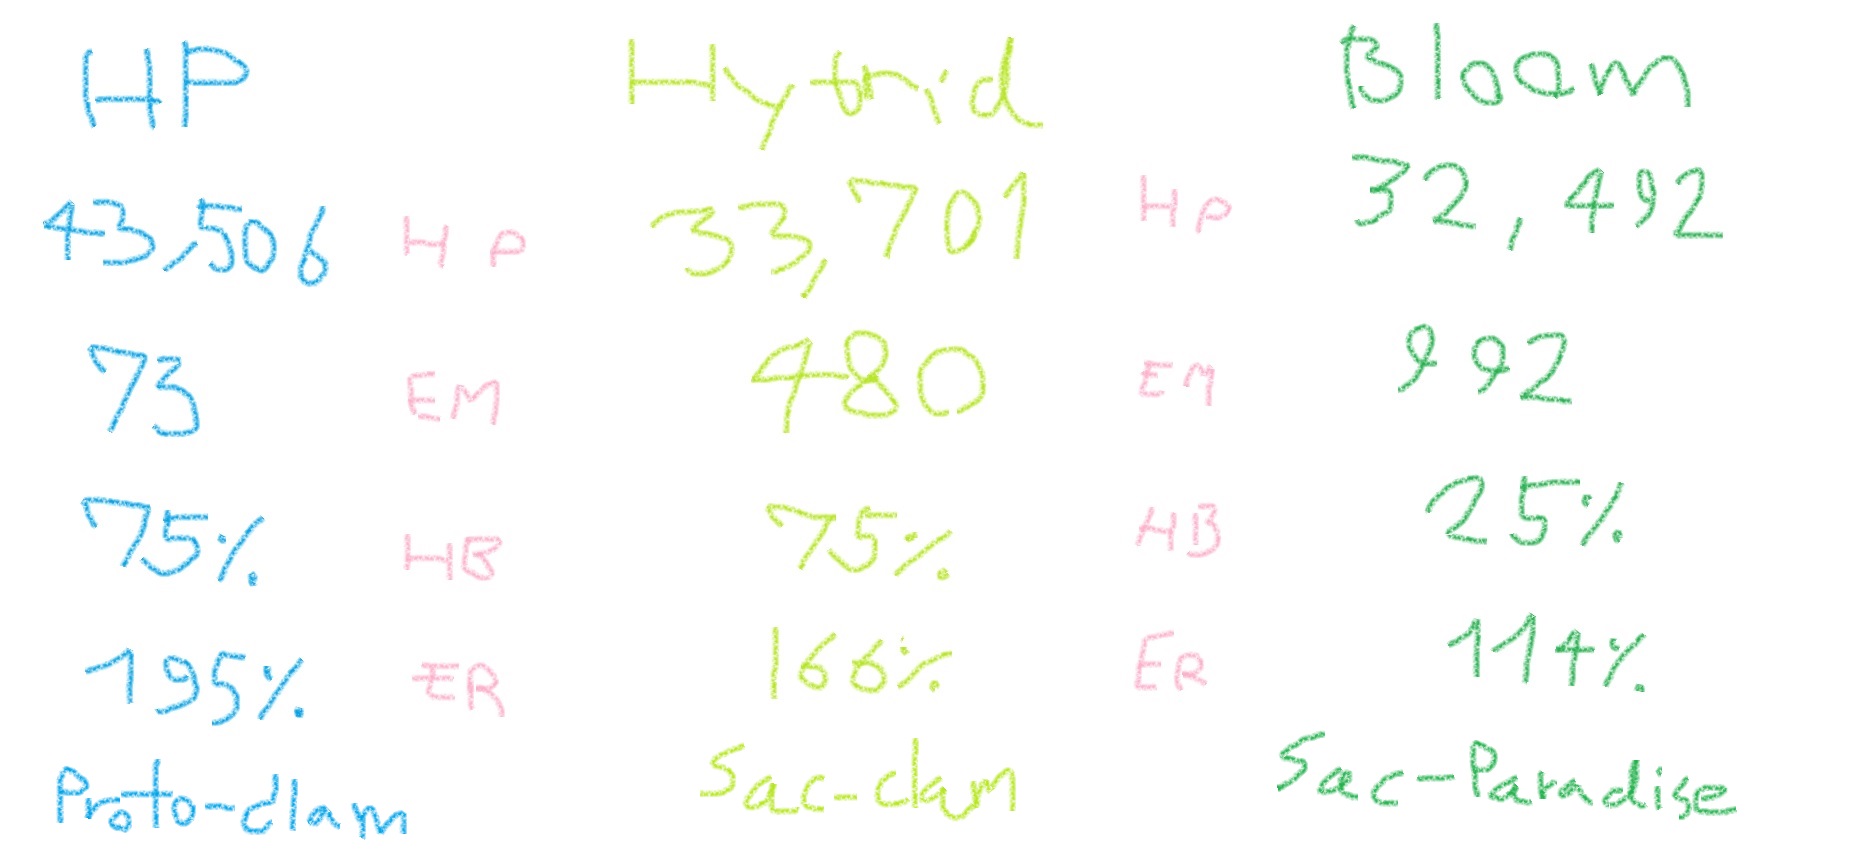 HP Hybrid Bloom
43,506 HP 33,701 HP 32,492
73 EM 480 EM 992
75% HB 75% HB 25%
195% ER 166% ER 114%
Proto-clam Sac-clam Sac-Paradise